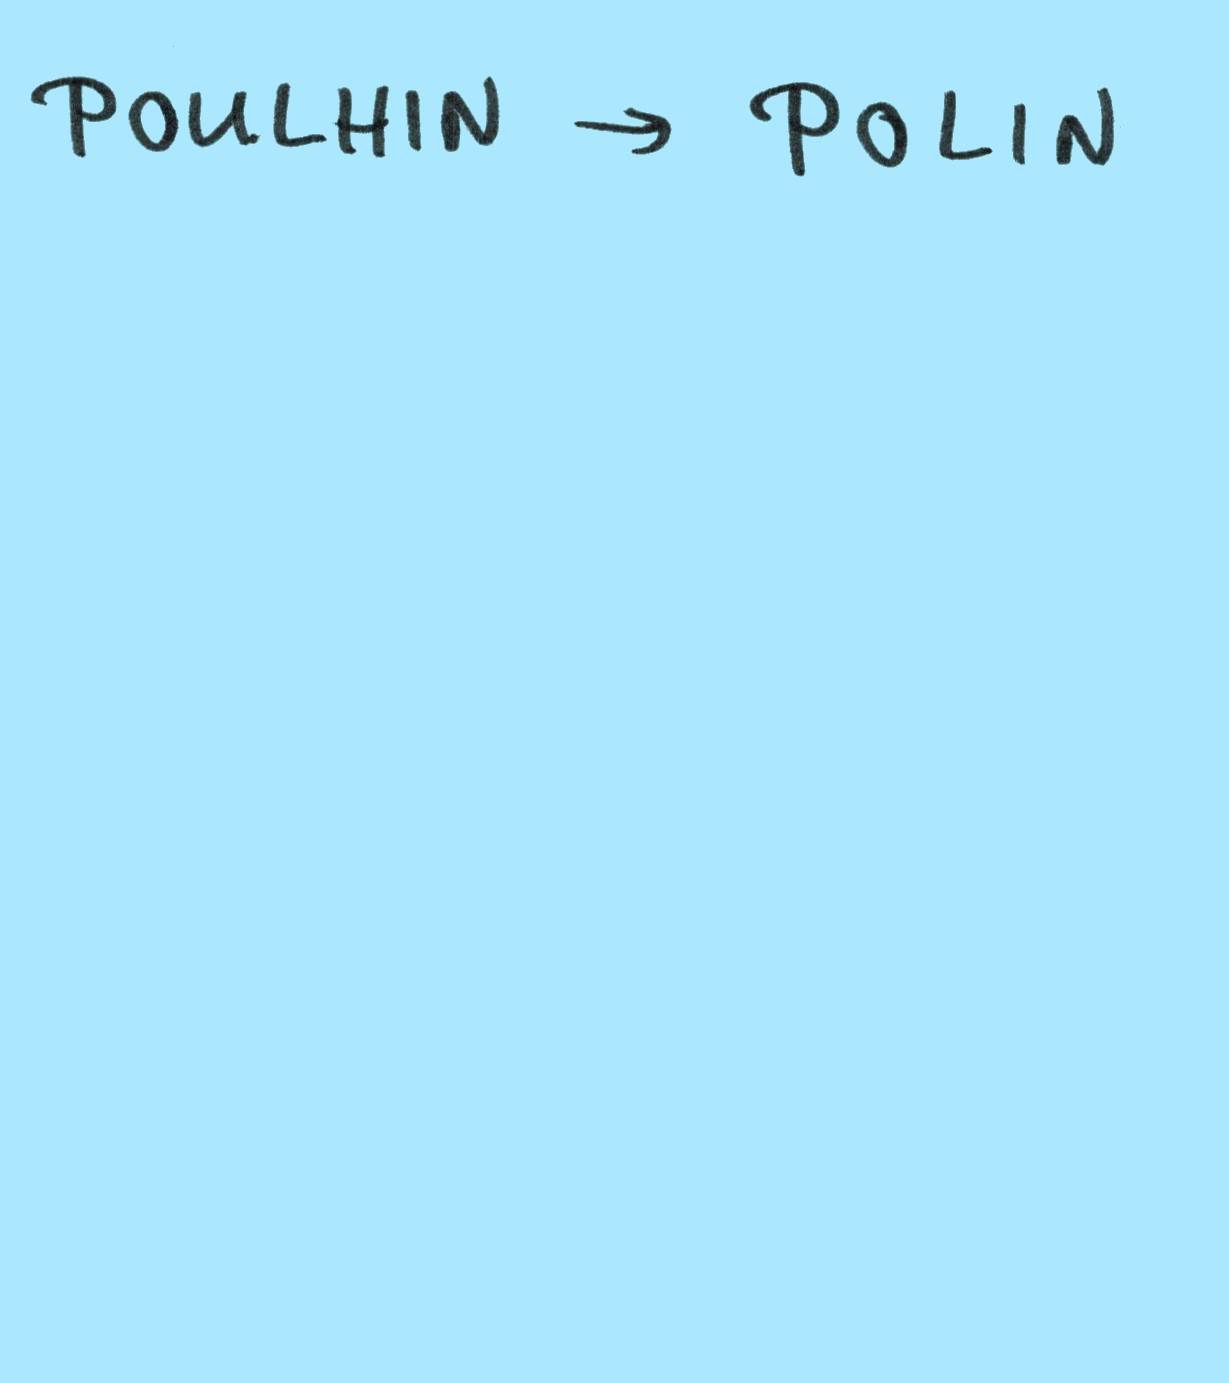 POULHIN → POLIN